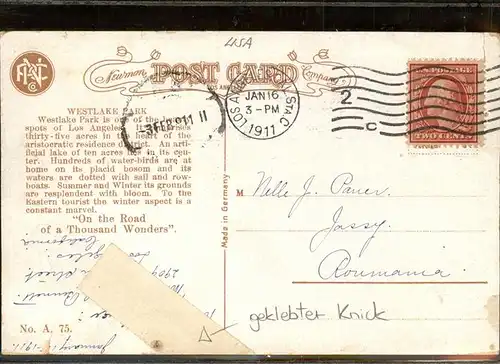 USA
Newman POST CARD Company
LOS ANGELES STA. C.
JAN 16
3-PM
1911
2
C
U.S. POSTAGE
TWO CENTS
WESTLAKE PARK
Westlake Park is one of the
spots of Los Angeles. It
thirty-five acres in the heart of the
aristocratic residence district. An arti-
ficial lake of ten acres lies in its cen-
ter. Hundreds of water-birds are at
home on its placid bosom and its
waters are dotted with sail and row-
boats. Summer and Winter its grounds
are resplendent with bloom. To the
Eastern tourist the winter aspect is a
constant marvel.
"On the Road
of a Thousand Wonders".
Made in Germany
M
Nelle J.
Jassy.
Roumania.
California
Los
2904
No. A. 75.
January
1911.
geklebter Knick